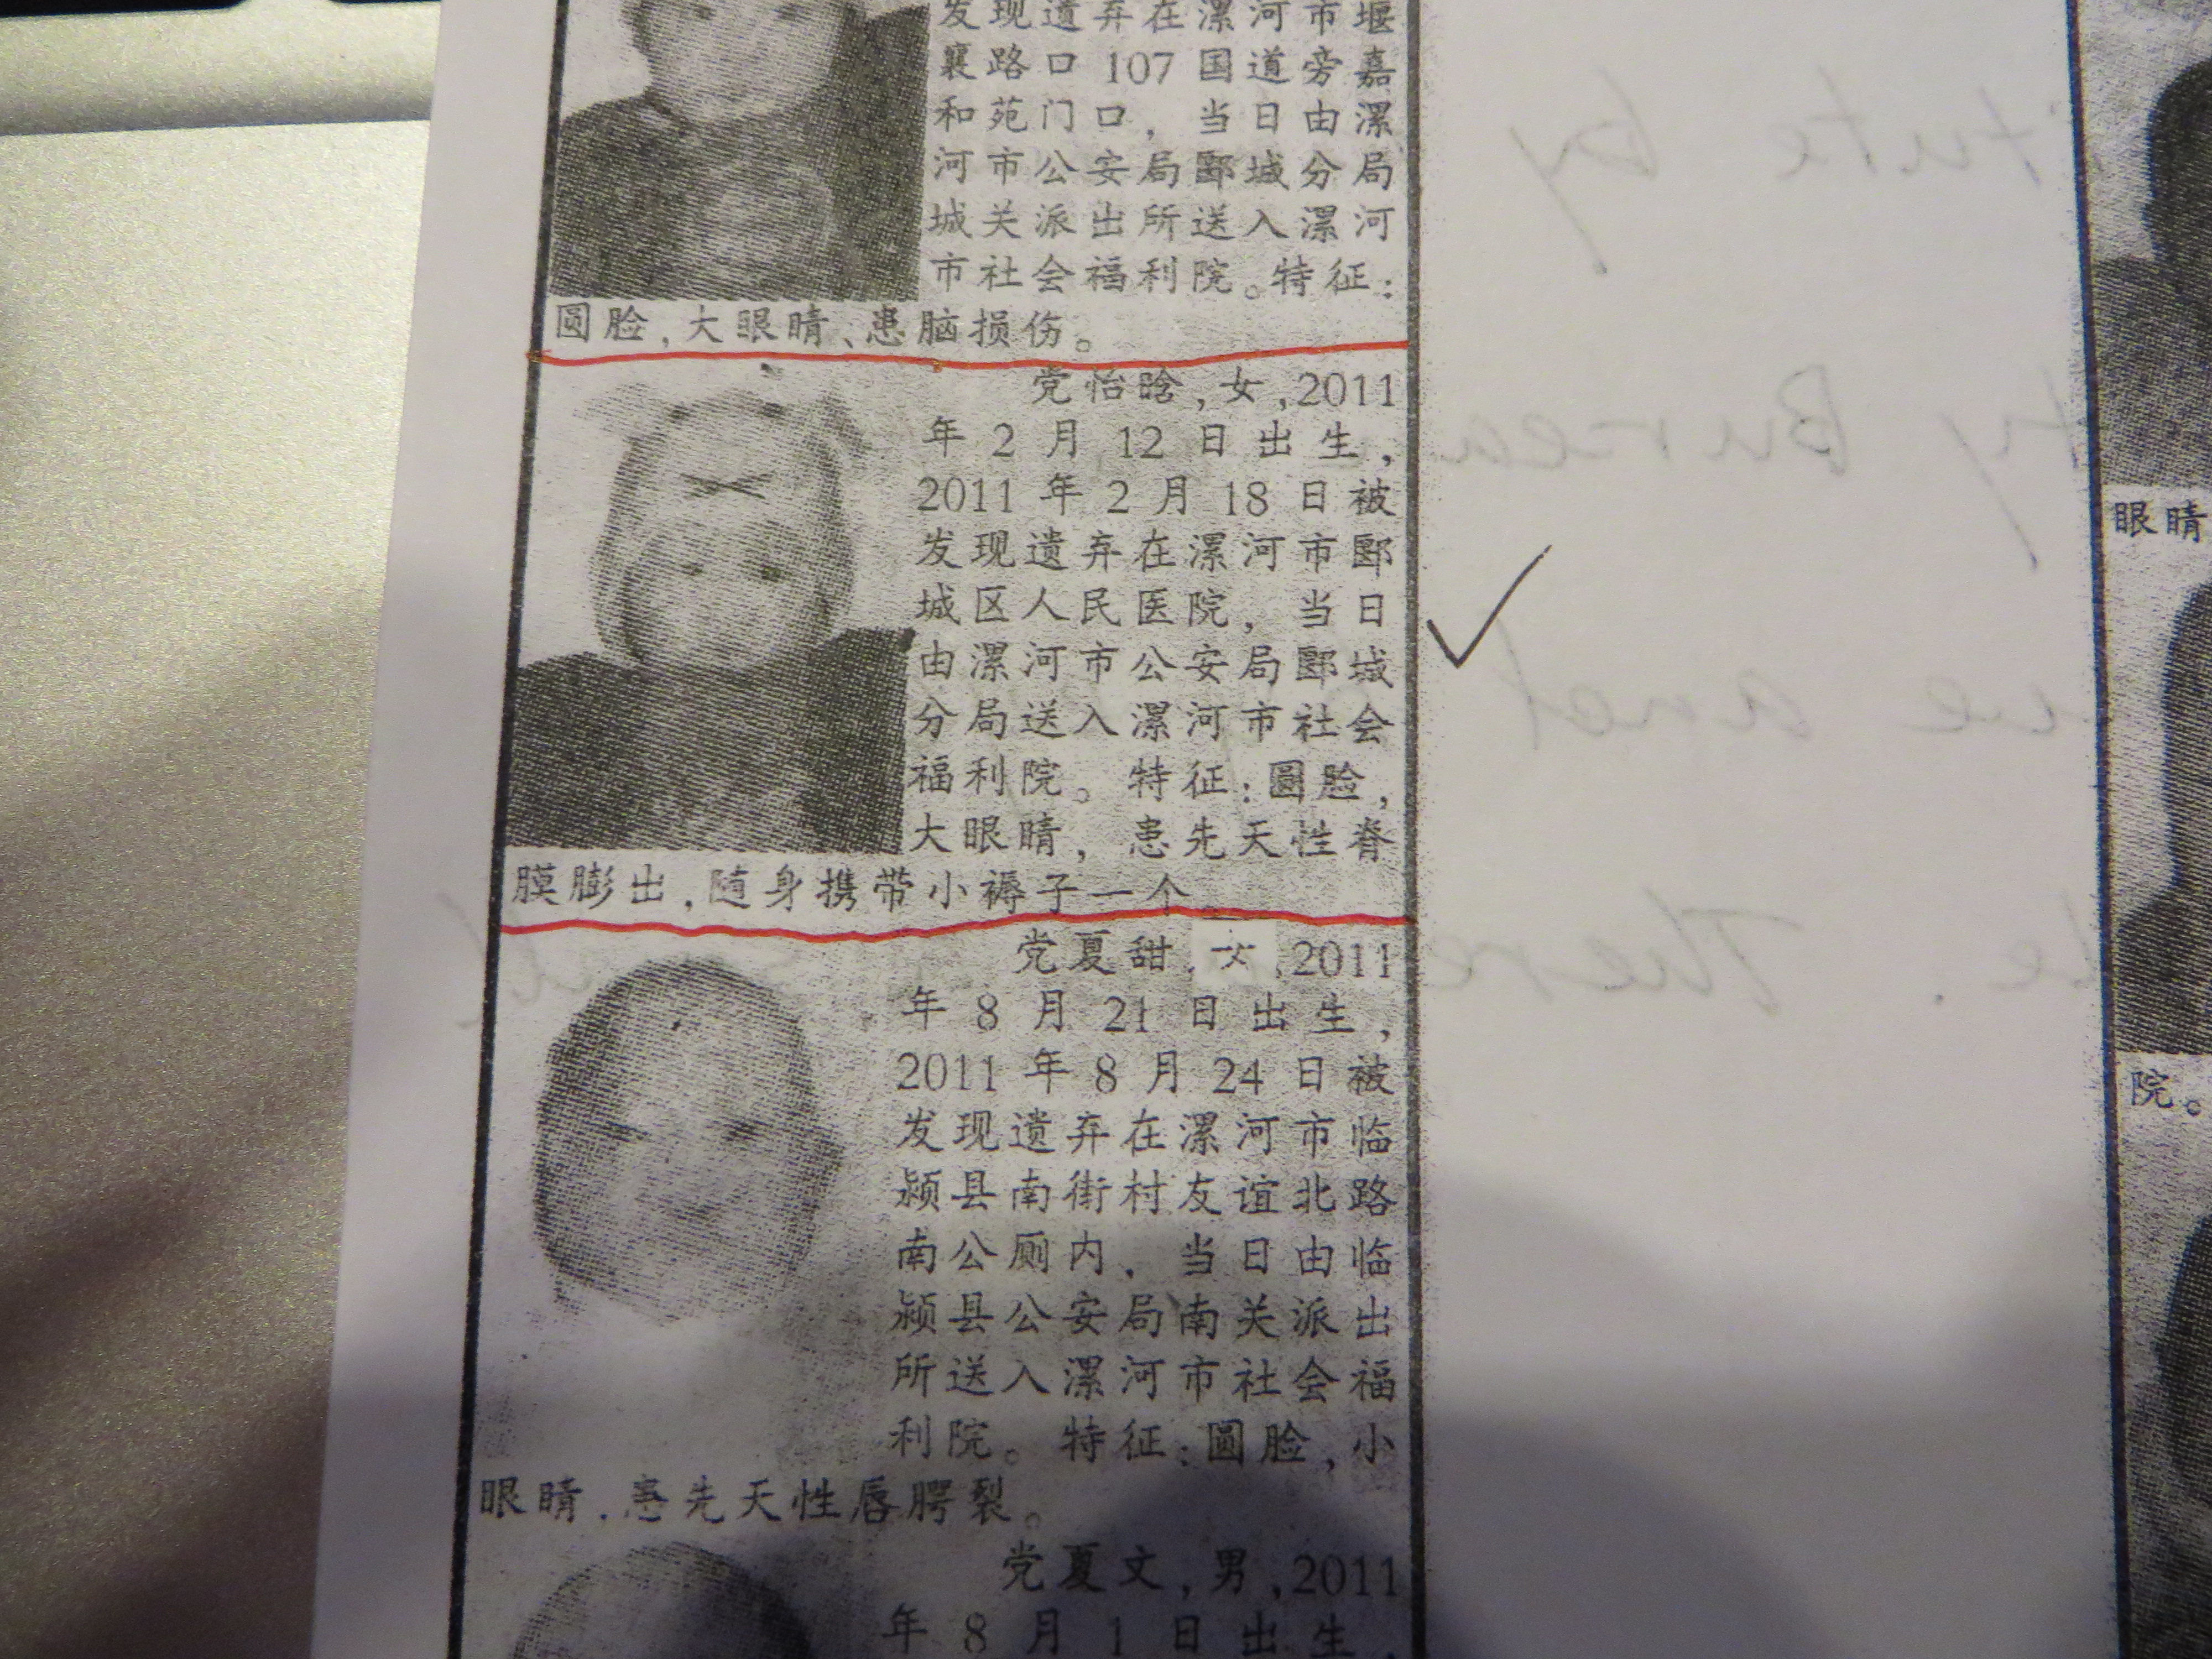 发现遗弃在漯河市堰
襄路口 107 国道旁嘉
和苑门口，当日由漯
河市公安局郾城分局
城关派出所送入漯河
市社会福利院。特征：
圆脸，大眼睛、患脑损伤。
党怡晗，女，2011
年 2 月 12 日出生，
2011 年 2 月 18 日被
发现遗弃在漯河市郾
城区人民医院，当日
由漯河市公安局郾城
分局送入漯河市社会
福利院。特征：圆脸，
大眼睛，患先天性脊
膜膨出，随身携带小褥子一个
党夏甜，女，2011
年 8 月 21 日出生，
2011 年 8 月 24 日被
发现遗弃在漯河市临
颍县南街村友谊北路
南公厕内，当日由临
颍县公安局南关派出
所送入漯河市社会福
利院。特征：圆脸，小
眼睛．患先天性唇腭裂。
党夏文，男，2011
年 8 月 1 日出生，
tute by
ty Burea
ue and
le. There
眼睛
院。